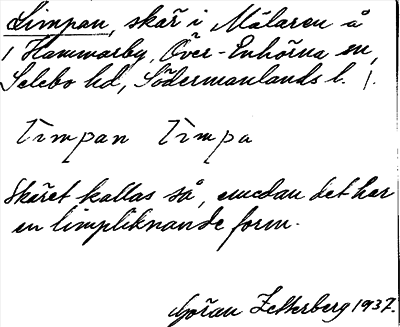 Limpan, skär i Mälaren å
1 Hammarby, Över-Enhörna sn,
Selebo hd, Södermanlands l.
limpan limpa
Skäret kallas så, emedan det har
en limpliknande form.
Göran Zetterberg 1937.